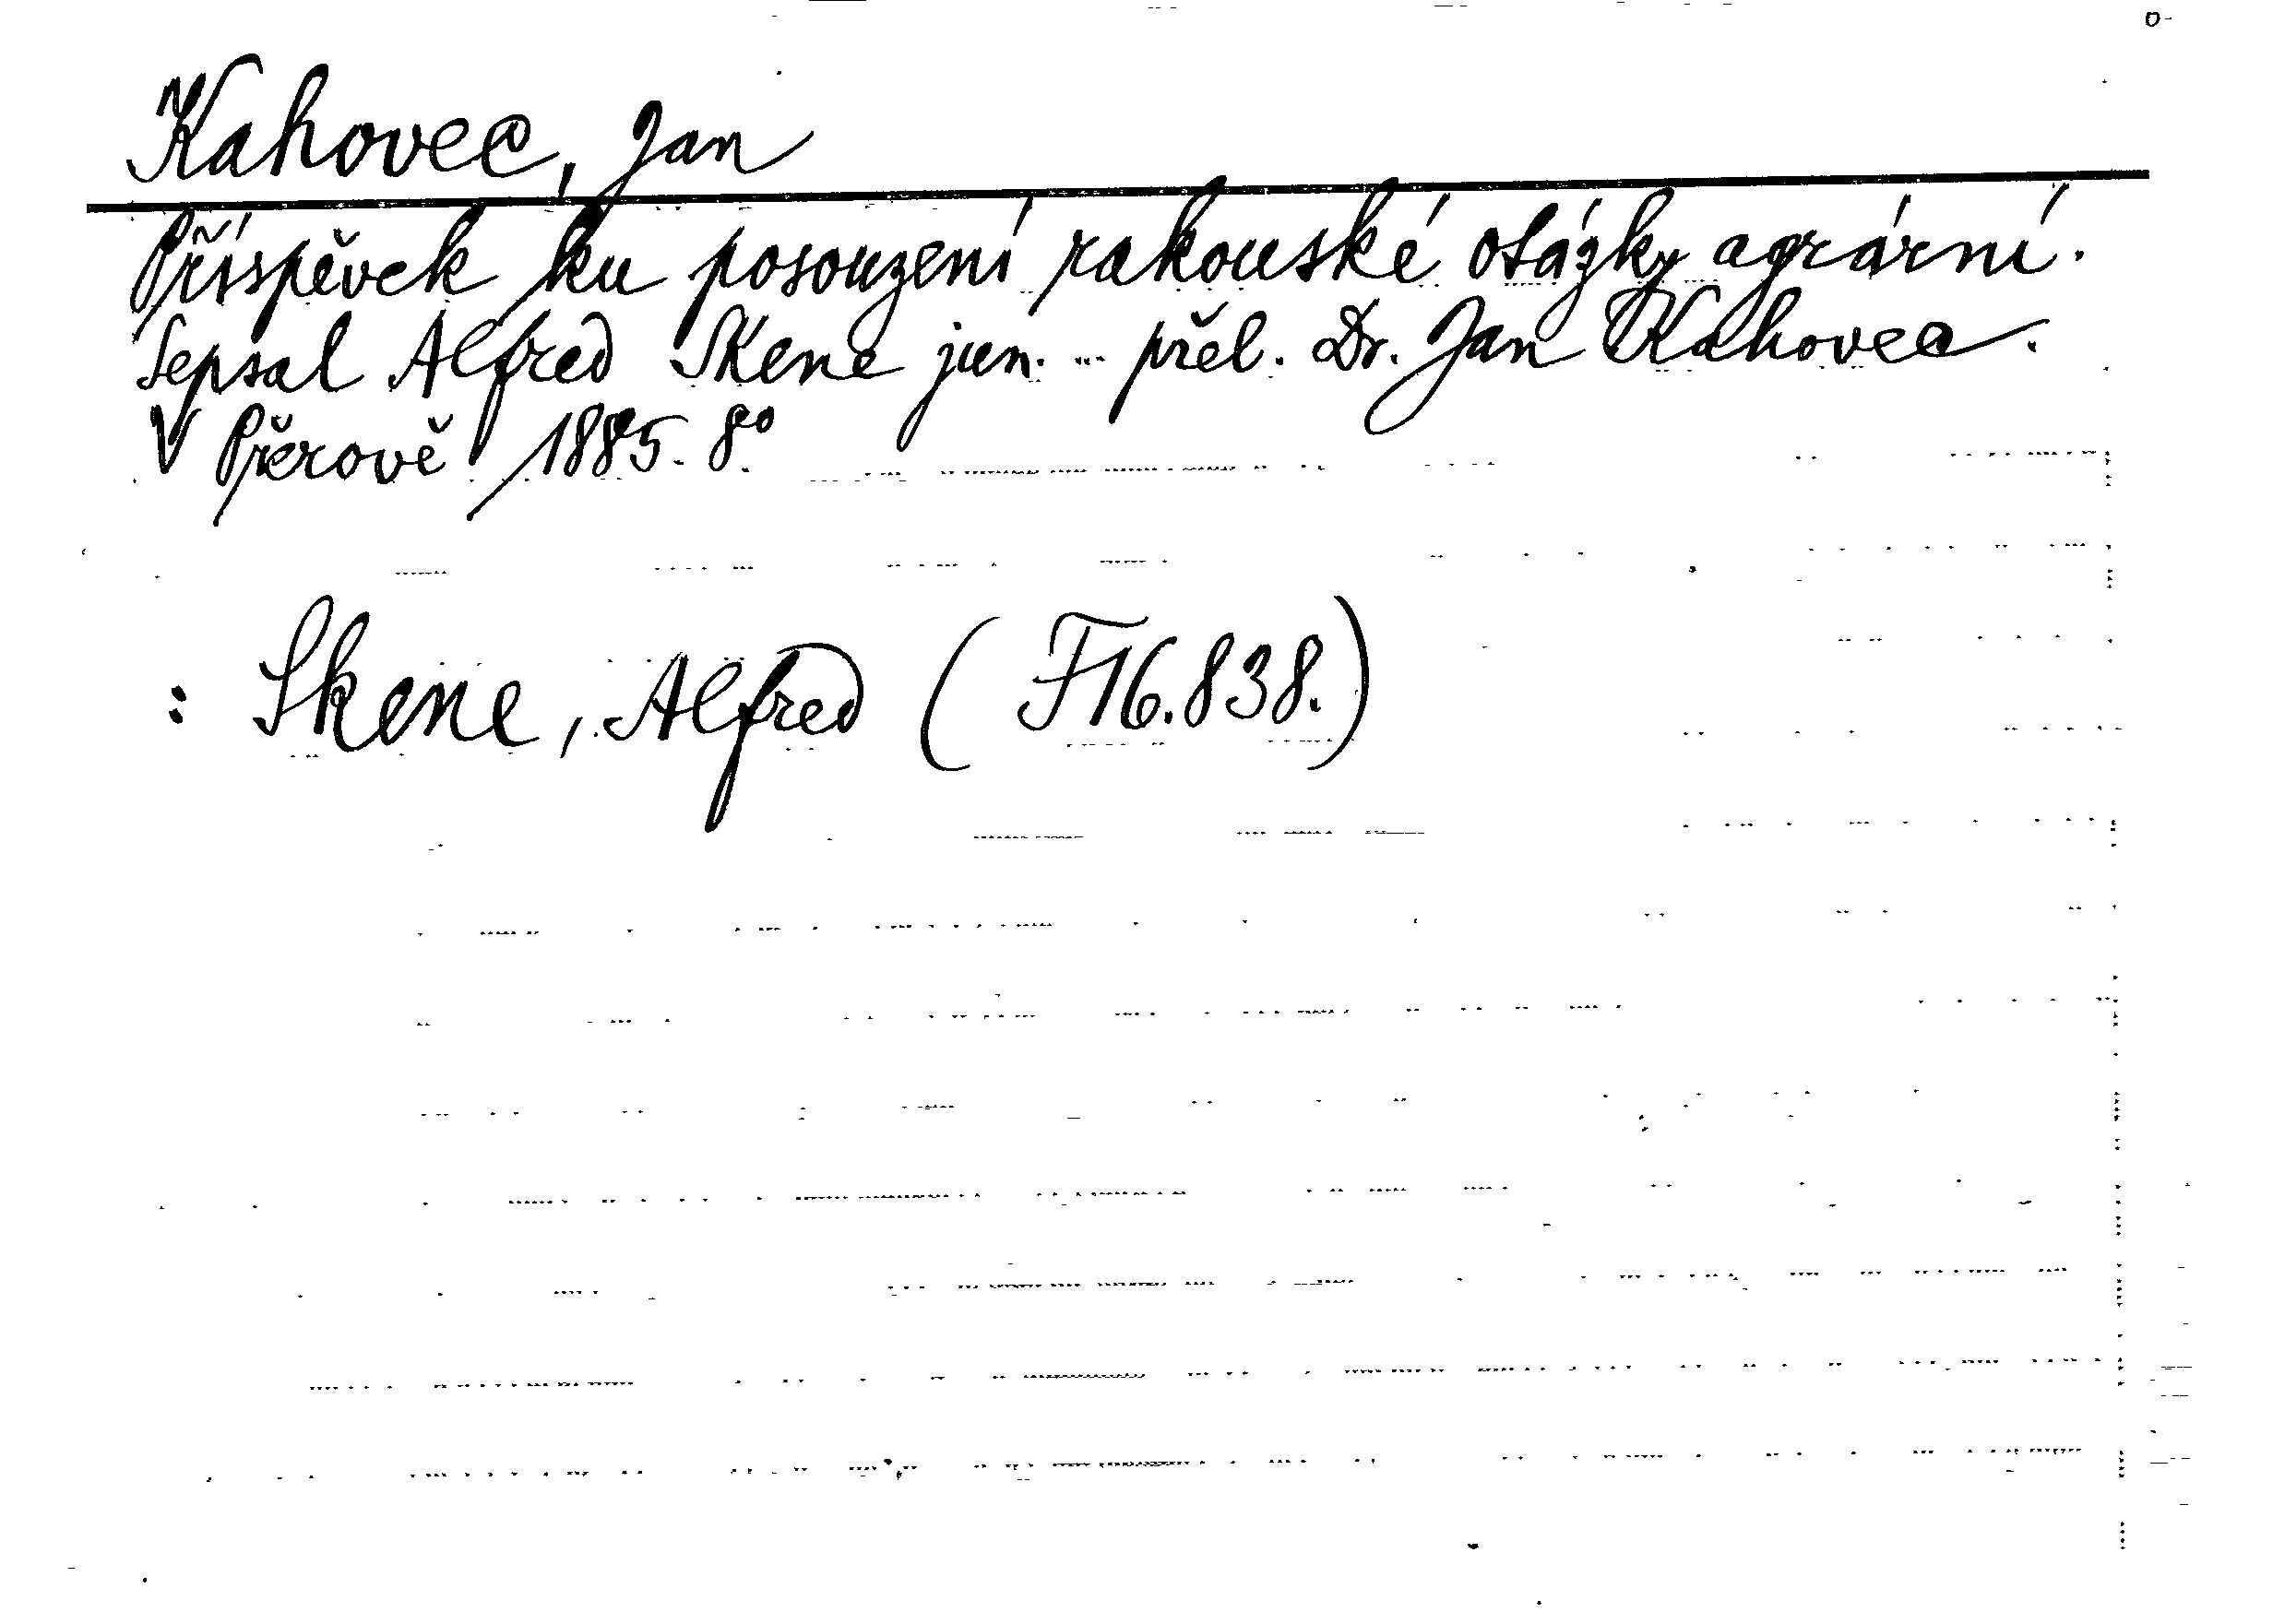 Kahovec, Jan
Příspěvek ku posouzení rakouské otázky agrární.
Sepsal Alfred Skene jun. ... přel. Dr. Jan Kahovec.
V Přerově 1885. 8°
: Skene, Alfred (F16.838.)